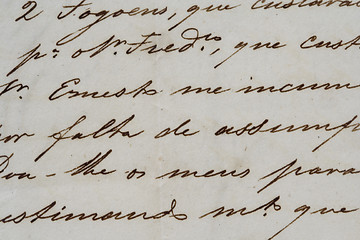 2 Fogoens, que custara
pa. o Sr. Fredco., que cust
Sr. Ernesto me incum
por falta de assump
Doa-lhe os meus para
estimando mto. que